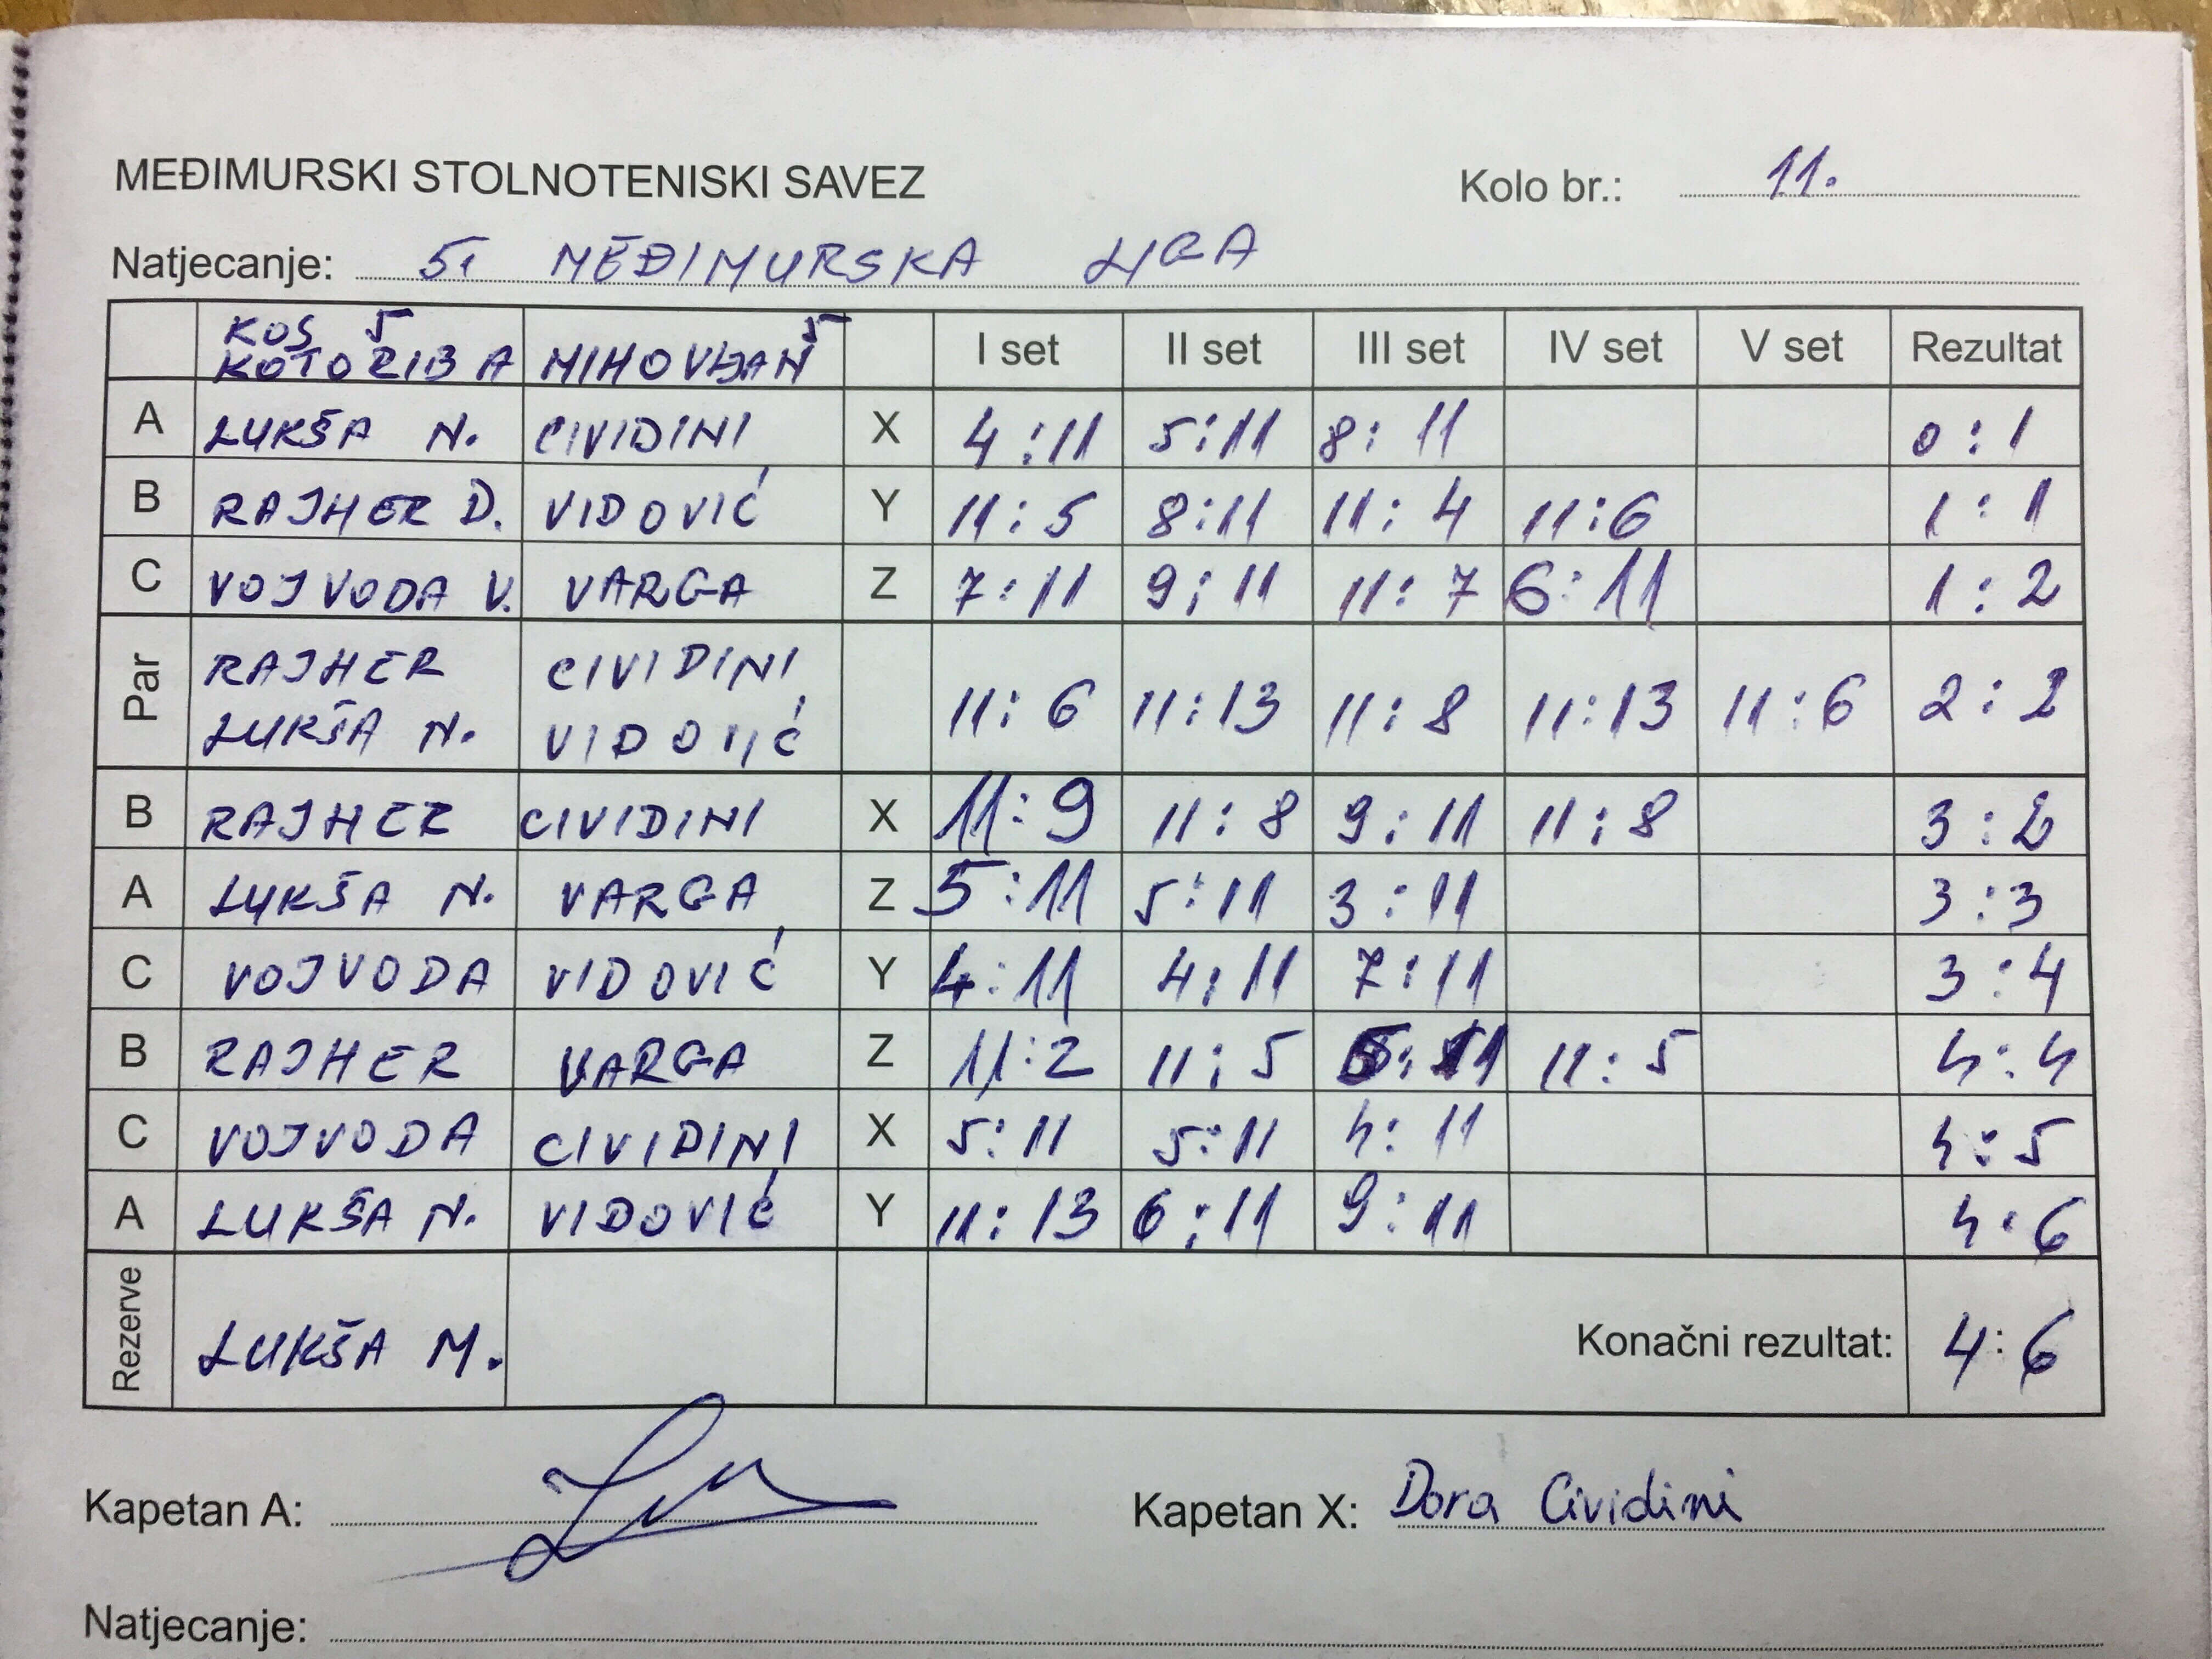 MEĐIMURSKI STOLNOTENISKI SAVEZ Kolo br.: 11.
Natjecanje: 5. MEĐIMURSKA LIGA
KOS 5
KOTORIBA MIHOVLJAN 5 I set II set III set IV set V set Rezultat
A LUKŠA N. CIVIDINI X 4:11 5:11 8:11 0:1
B RAJHER D. VIDOVIĆ Y 11:5 8:11 11:4 11:6 1:1
C VOJVODA V. VARGA Z 7:11 9:11 11:7 6:11 1:2
Par RAJHER CIVIDINI
LUKŠA N. VIDOVIĆ 11:6 11:13 11:8 11:13 11:6 2:2
B RAJHER CIVIDINI X 11:9 11:8 9:11 11:8 3:2
A LUKŠA N. VARGA Z 5:11 5:11 3:11 3:3
C VOJVODA VIDOVIĆ Y 4:11 4:11 7:11 3:4
B RAJHER VARGA Z 11:2 11:5 11:5 4:4
C VOJVODA CIVIDINI X 5:11 5:11 4:11 4:5
A LUKŠA N. VIDOVIĆ Y 11:13 6:11 9:11 4:6
Rezerve LUKŠA M. Konačni rezultat: 4:6
Kapetan A: Kapetan X: Dora Cividini
Natjecanje: